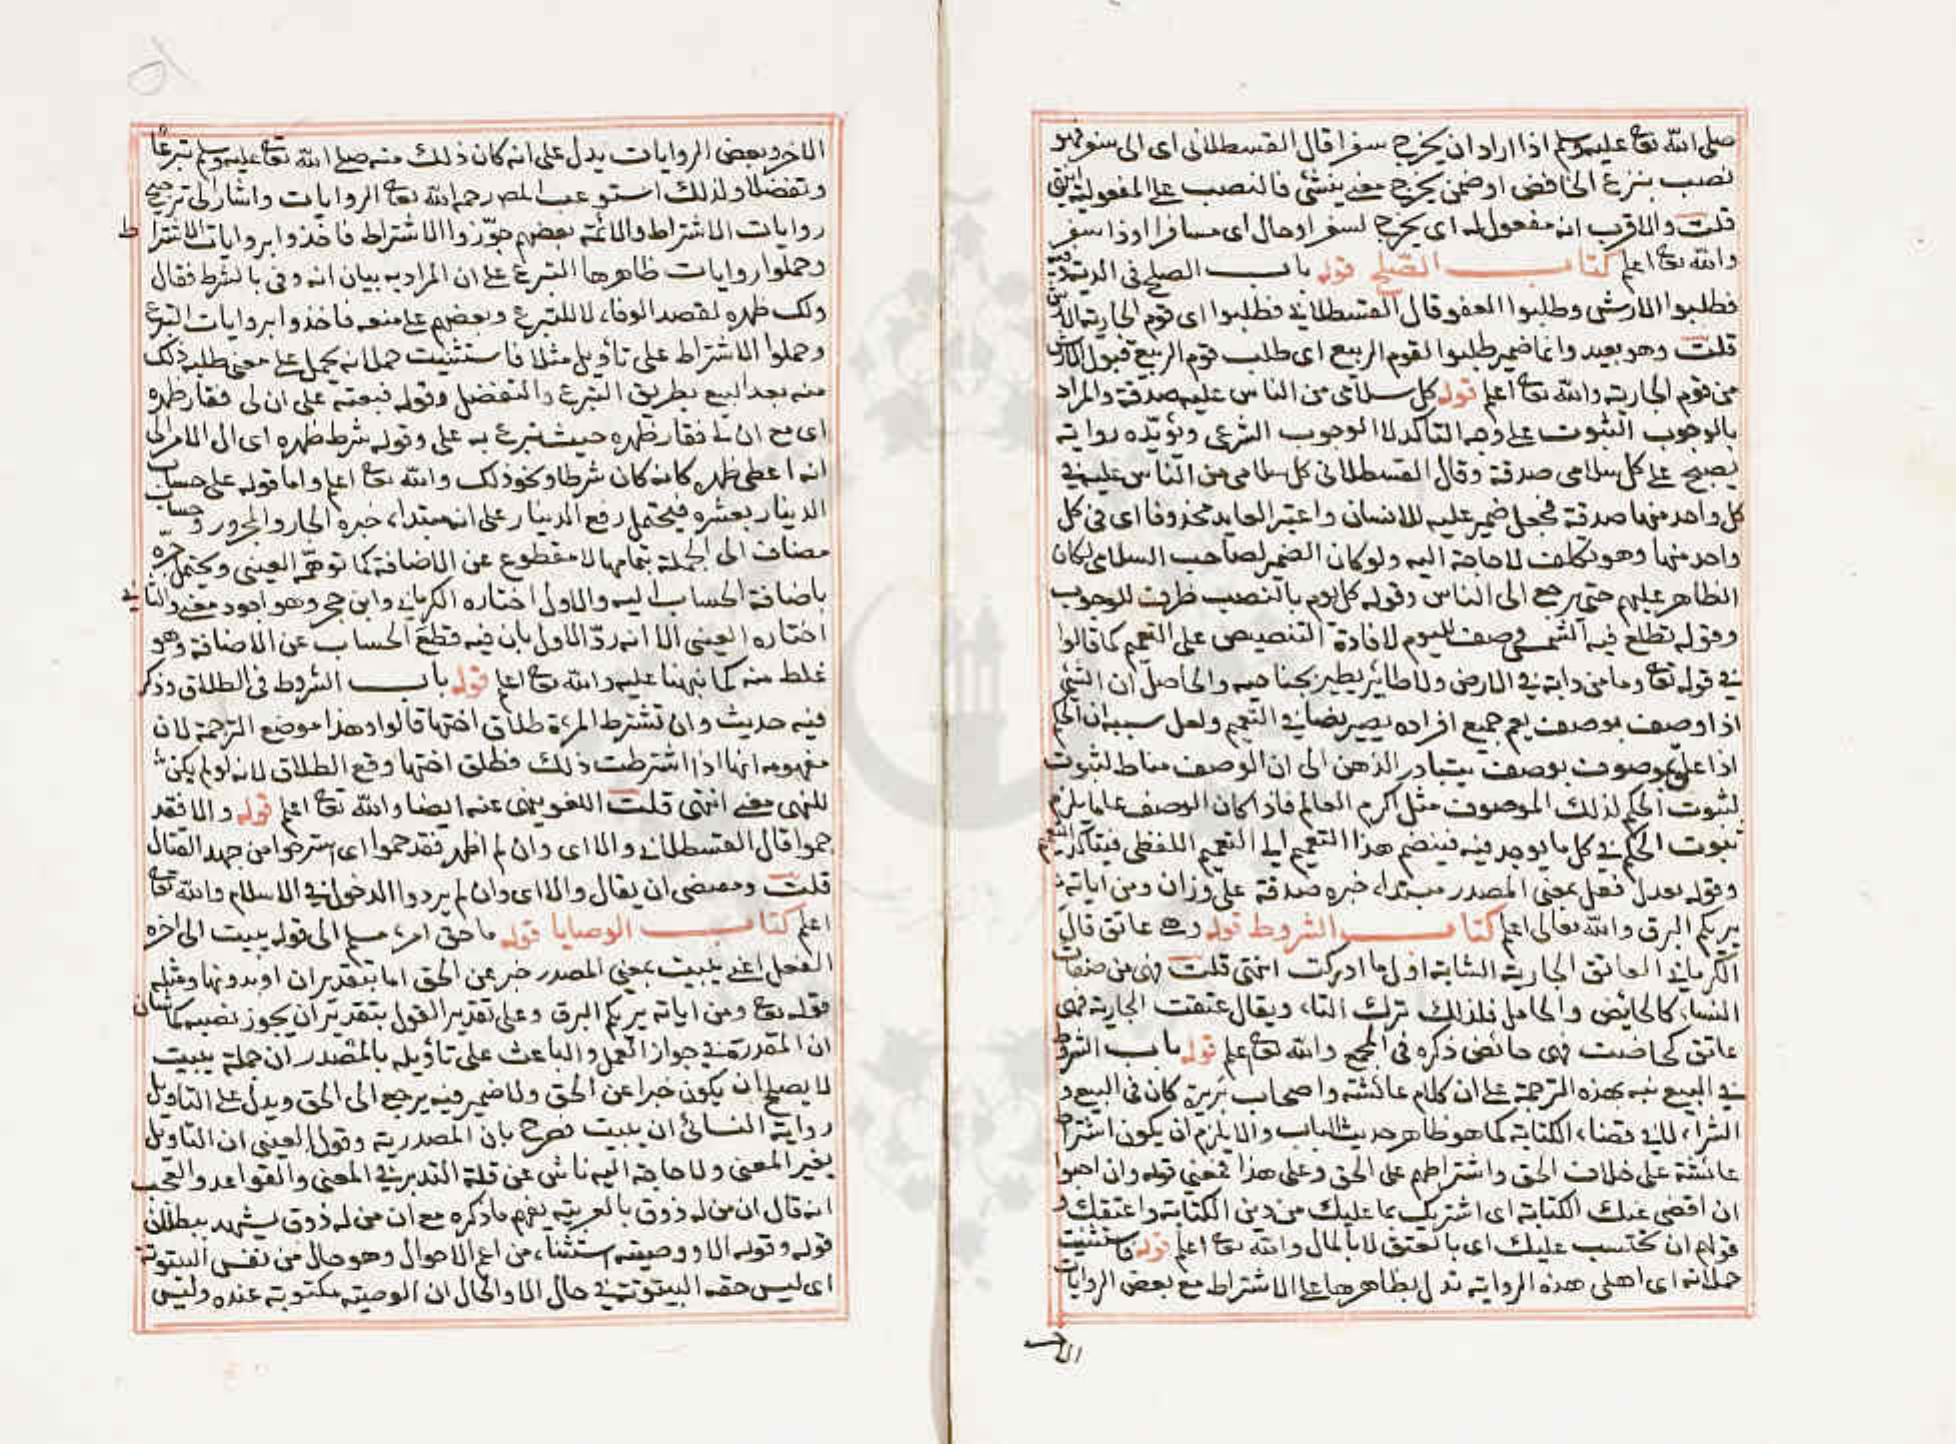 صلى الله تع عليه وسلم اذا اراد ان يخرج سفرا قال القسطلاني اي الى سفر فهو
نصب بنزع الخافض او ضمن يخرج معنى ينشئ فالنصب على المفعولية انتهى
قلت والاقرب انه مفعول له اي يخرج لسفر او حال اي مسافرا او ذا سفر
والله تع اعلم كتاب الصلح قوله باب الصلح في الدية
فطلبوا الارش وطلبوا العفو قال القسطلاني فطلبوا اي قوم الجارية الارش
قلت وهو بعيد وانما ضمير طلبوا لقوم الربيع اي طلب قوم الربيع قبول الارش
من قوم الجارية والله تع اعلم قوله كل سلامى من الناس عليه صدقة والمراد
بالوجوب الثبوت على وجه التأكد لا الوجوب الشرعي وتؤيده رواية
يصبح على كل سلامى صدقة وقال القسطلاني كل سلامى من الناس عليه في
كل واحد منها صدقة فجعل ضمير عليه للانسان واعتبر العايد محذوفا اي في كل
واحد منها وهو تكلف لا حاجة اليه ولو كان الضمير لصاحب السلامى لكان
الظاهر عليهم حتى يرجع الى الناس وقوله كل يوم بالنصب ظرف للوجوب
وقوله تطلع فيه الشمس وصف لليوم لافادة التنصيص على التعميم كما قالوا
في قوله تع وما من دابة في الارض ولا طائر يطير بجناحيه والحاصل ان الشئ
اذا وصف بوصف يعم جميع افراده يصير نصا في التعميم ولعل سببه ان الحكم
اذا علق بموصوف بوصف يتبادر الذهن الى ان الوصف مناط لثبوت
لثبوت الحكم لذلك الموصوف مثل اكرم العالم فاذا كان الوصف عاما يلزم
ثبوت الحكم في كل ما يوجد فيه فينضم هذا التعميم الى التعميم اللفظي فيتأكد
وقوله يعدل فعل بمعنى المصدر مبتداء خبره صدقة على وزان ومن اياته
يريكم البرق والله تعالى اعلم كتاب الشروط قوله وهي عاتق قال
الكرماني العاتق الجارية الشابة اول ما ادركت انتهى قلت فهى من صفات
النساء كالحائض والحامل فلذلك ترك التاء ويقال عتقت الجارية فهى
عاتق كحاضت فهى حائض ذكره في المجمع والله تع اعلم قوله باب الشروط
في البيع نبه بهذه الترجمة على ان كلام عائشة واصحاب بريرة كان في البيع و
الشراء لا في قضاء الكتابة كما هو ظاهر حديث الباب والا يلزم ان يكون اشتراط
عائشة على خلاف الحق واشتراطهم على الحق وعلى هذا فمعنى قوله وان احبوا
ان اقضي عنك الكتابة اي اشتريك بما عليك من دين الكتابة واعتقك و
قولهم ان تحتسب عليك اي بالعتق لا بالمال والله تع اعلم قوله فاستثنيت
حملانه اي اهلي هذه الرواية تدل بظاهرها على الاشتراط مع بعض الروايات
الاخر
الاخر وبعض الروايات يدل على انه كان ذلك منه صلى الله تع عليه وسلم تبرعا
وتفضلا ولذلك استوعب المص رحمه الله تع الروايات واشار الى ترجيح
روايات الاشتراط والائمة بعضهم جوّزوا الاشتراط فاخذوا بروايات الاشتراط
وحملوا روايات ظاهرها التبرع على ان المراد به بيان انه وفى بالشرط فقال
ولك ظهره لقصد الوفاء لا للتبرع وبعضهم على منعه فاخذوا بروايات التبرع
وحملوا الاشتراط على تأويل مثلا فاستثنيت حملانه يحمل على معنى طلبه ذلك
منه بعد البيع بطريق التبرع والتفضل وقوله فبعته على ان لي فقار ظهره
اي مع ان لي فقار ظهره حيث تبرع به علي وقوله شرط ظهره اي ال الامر الى
انه اعطى ظهره كانه كان شرطا ونحو ذلك والله تع اعلم واما قوله على حساب
الدينار بعشره فيحتمل رفع الدينار على انه مبتداء خبره الجار والمجرور وحساب
مضاف الى الجملة بتمامها لا مقطوع عن الاضافة كما توهمه العيني ويحتمل جره
باضافة الحساب اليه والاول اختاره الكرماني وابن حجر وهو اجود معنى والثاني
اختاره العيني الا انه ردّ الاول بان فيه قطع الحساب عن الاضافة وهو
غلط منه كما نبهنا عليه والله تع اعلم قوله باب الشروط في الطلاق وذكر
فيه حديث وان تشترط المرءة طلاق اختها قالوا وهذا موضع الترجمة لان
مفهومه انها اذا اشترطت ذلك فطلق اختها وقع الطلاق لانه لو لم يكن
للنهي معنى انتهى قلت اللغو ينهى عنه ايضا والله تع اعلم قوله والا فقد
جموا قال القسطلاني والا اي وان لم اظهر فقد جموا اي استرحوا من جهد القتال
قلت ومقتضى ان يقال والا اي وان لم يردوا الدخول في الاسلام والله تع
اعلم كتاب الوصايا قوله ما حق امرء مسلم الى قوله يبيت الى اخره
الفعل اعني يبيت بمعنى المصدر خبر عن الحق اما بتقدير ان او بدونها ومثله
قوله تع ومن اياته يريكم البرق وعلى تقدير القول بتقدير ان يجوز نصبه كما شان
ان المقدرة في جواز العمل والباعث على تأويله بالمصدر ان جملة يبيت
لا يصلح ان يكون خبرا عن الحق ولا ضمير فيه يرجع الى الحق ويدل على التاويل
رواية النسائى ان يبيت فصرح بان المصدرية وقول العيني ان التاويل
يغير المعنى ولا حاجة اليه ناش عن قلة التدبر في المعنى والقواعد والعجب
انه قال ان من له ذوق بالعربية يفهم ما ذكره مع ان من له ذوق يشهد ببطلان
قوله وقوله الا ووصيته استثناء من اعم الاحوال وهو حال من نفس البيتوتة
اي ليس حقه البيتوتة في حال الا والحال ان الوصية مكتوبة عنده وليس